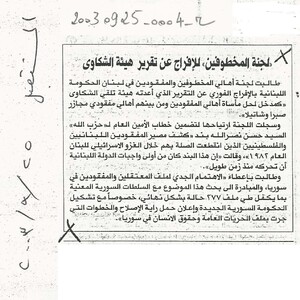 20030925_0004_2
المستقبل
٢٠٠٣/٩/٢٥
«لجنة المخطوفين» للإفراج عن تقرير هيئة الشكاوى
طالبت لجنة أهالي المخطوفين والمفقودين في لبنان الحكومة
اللبنانية بالإفراج الفوري عن التقرير الذي أعدته هيئة تلقي الشكاوى
«كمدخل لحل مأساة أهالي المفقودين ومن بينهم أهالي مفقودي مجازر
صبرا وشاتيلا».
وسجلت اللجنة ارتياحها لتضمين خطاب الأمين العام لـ«حزب الله»
السيد حسن نصرالله بند «كشف مصير المفقودين اللبنانيين
والفلسطينيين الذين انقطعت الصلة بهم خلال الغزو الاسرائيلي للبنان
العام ١٩٨٢»، وقالت «إن هذا البند كان من أولى واجبات الدولة اللبنانية
أن تحركه منذ زمن طويل».
وطالبت بإعطاء «الاهتمام الجدي لملف المعتقلين والمفقودين في
سوريا، والمبادرة الى بحث هذا الموضوع مع السلطات السورية المعنية
بما يكفل طي ملف ٢٧٧ حالة بشكل نهائي، خصوصاً مع تشكيل
الحكومة السورية الجديدة وإعلان حمل راية الإصلاح والخطوات التي
جرت بملف الحريات العامة وحقوق الانسان في سوريا».